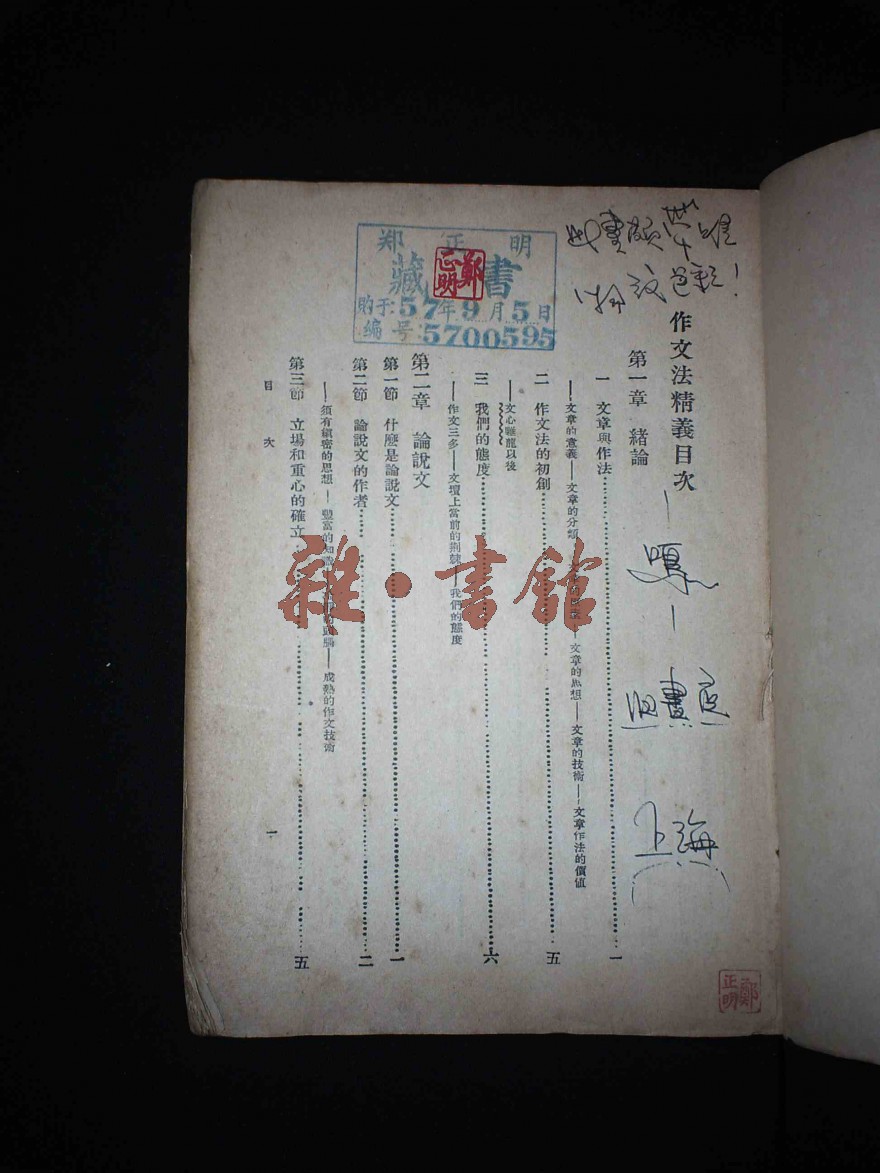 郑正明
藏書
购于:57年9月5日
编号:5700595
鄭正明
上海
作文法精義目次
第一章 緒論
一 文章與作法……一
——文章的意義——文章的分類——文章的思想——文章的技術——文章作法的價值
二 作文法的初創……五
——文心雕龍以後
三 我們的態度……六
——作文三多——文壇上當前的荆棘——我們的態度
第二章 論說文
第一節 什麼是論說文……一
第二節 論說文的作者……二
——須有縝密的思想——豐富的知識——成熟的作文技術
第三節 立場和重心的確立……五
目次
一
鄭正明
雜·書館